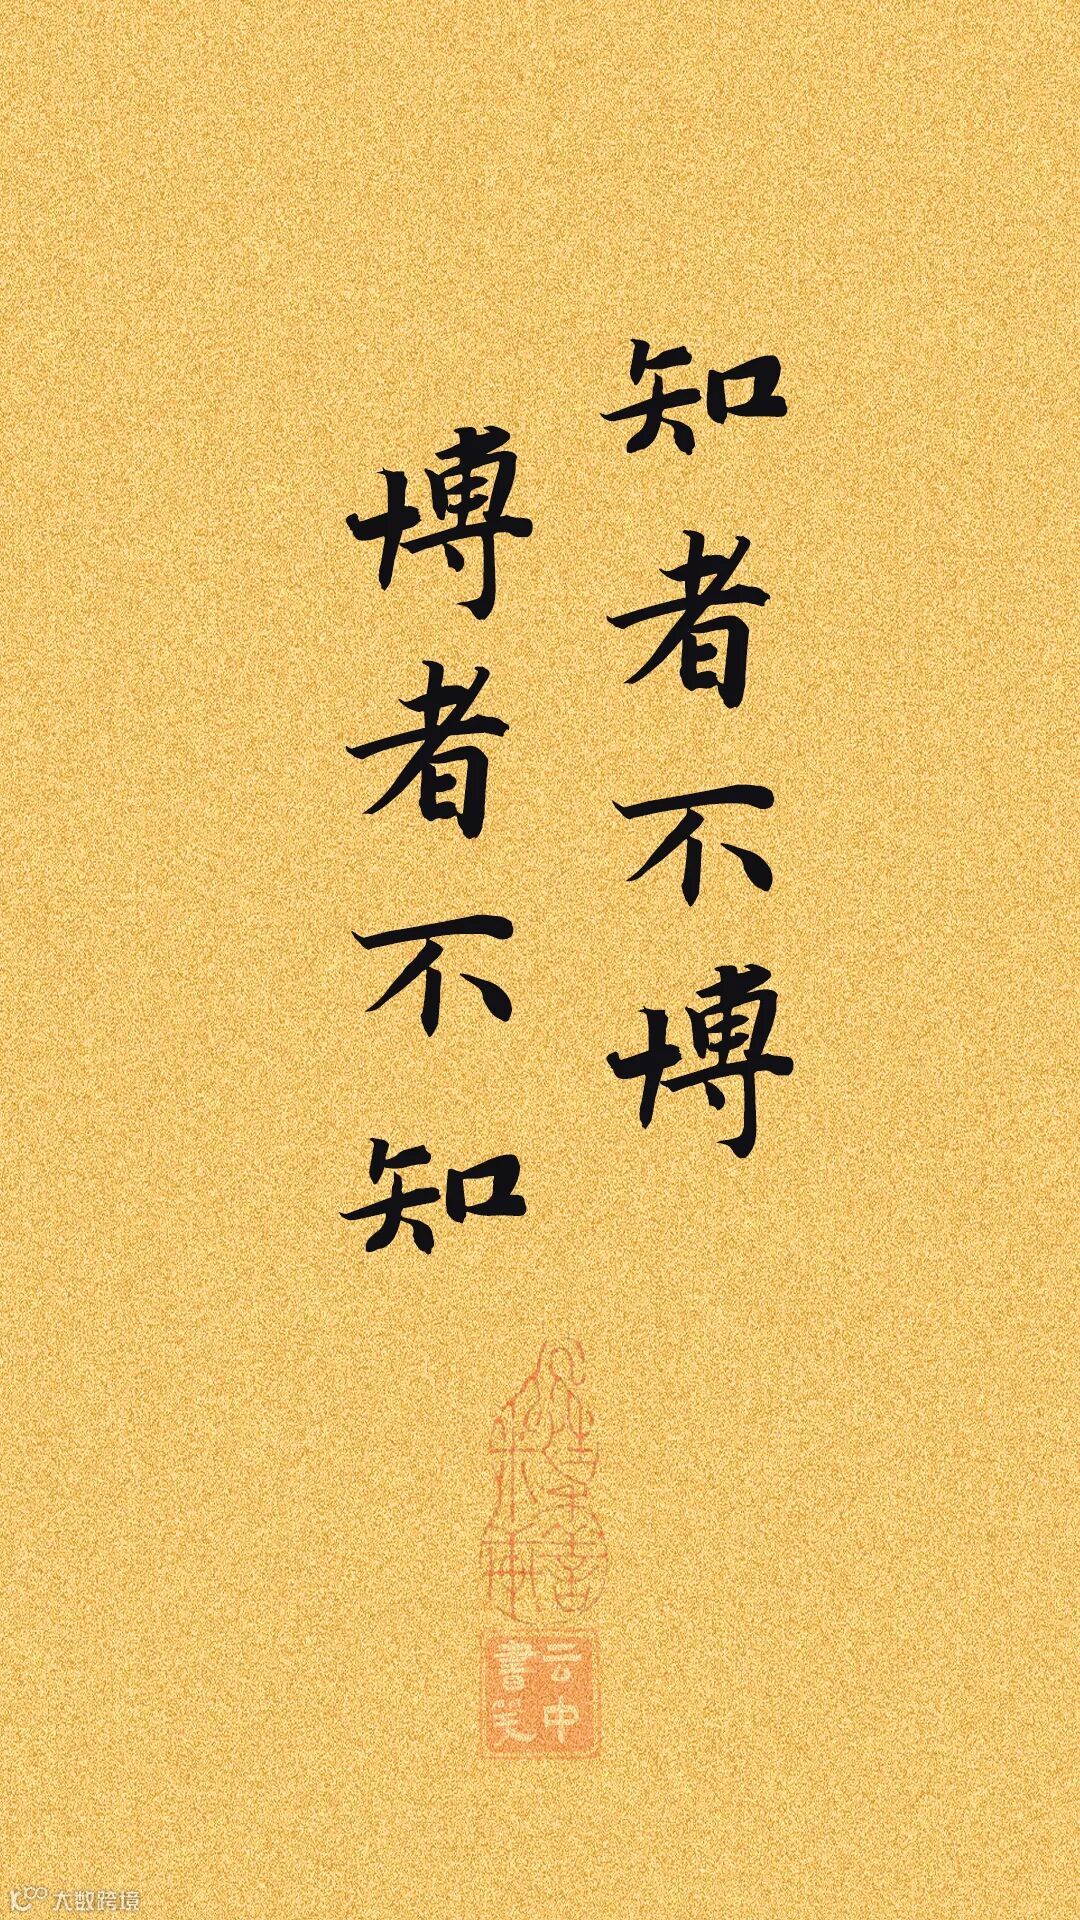 知者不博
博者不知
云中
書笑
大数跨境